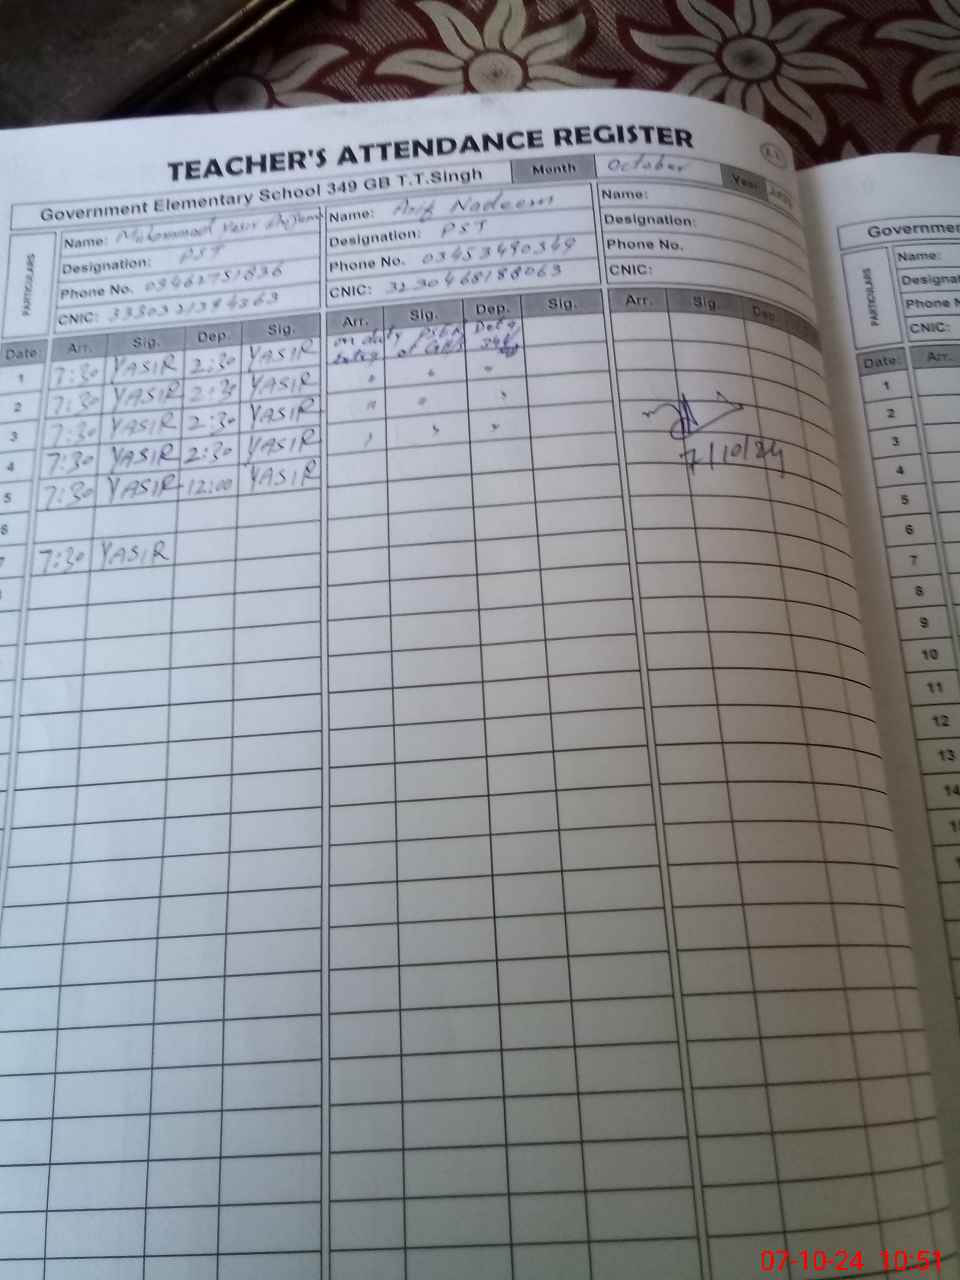 TEACHER'S ATTENDANCE REGISTER
Government Elementary School 349 GB T.T.Singh Month October Year
PARTICULARS
Name: Muhammad Yasir
Designation: PST
Phone No. 03462751836
CNIC:
Name: Arif Nadeem
Designation: PST
Phone No. 03453490349
CNIC:
Name:
Designation:
Phone No.
CNIC:
Date: Arr. Sig. Dep. Sig. Arr. Sig. Dep. Sig. Arr. Sig. Dep.
1 7:30 YASIR 2:30 YASIR on duty
2 7:30 YASIR 2:30 YASIR
3 7:30 YASIR 2:30 YASIR
4 7:30 YASIR 2:30 YASIR
5 7:30 YASIR 12:00 YASIR
6
7 7:30 YASIR
7/10/24
Governme
PARTICULARS
Name:
Designat
Phone N
CNIC:
Date: Arr.
1
2
3
4
5
6
7
8
9
10
11
12
13
14
07-10-24 10:51